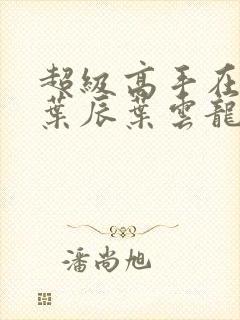 超級高手在
葉辰葉雲龍
潘尚旭